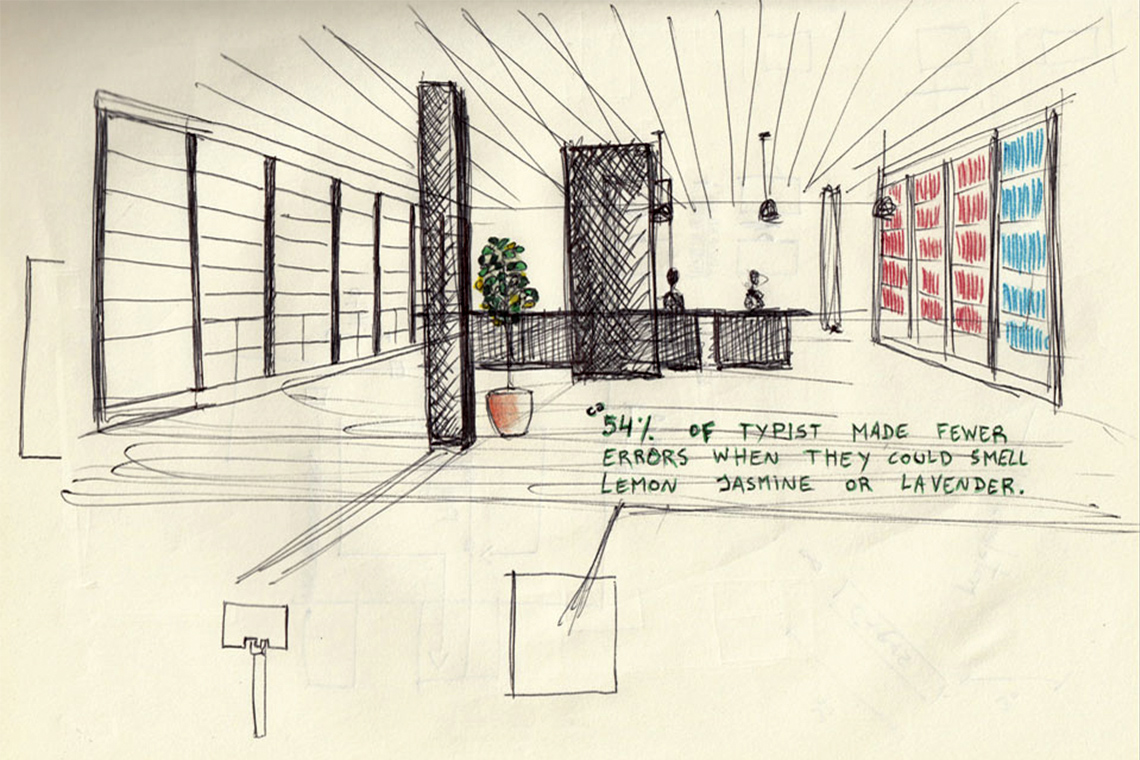 ca 54% OF TYPIST MADE FEWER
ERRORS WHEN THEY COULD SMELL
LEMON JASMINE OR LAVENDER.